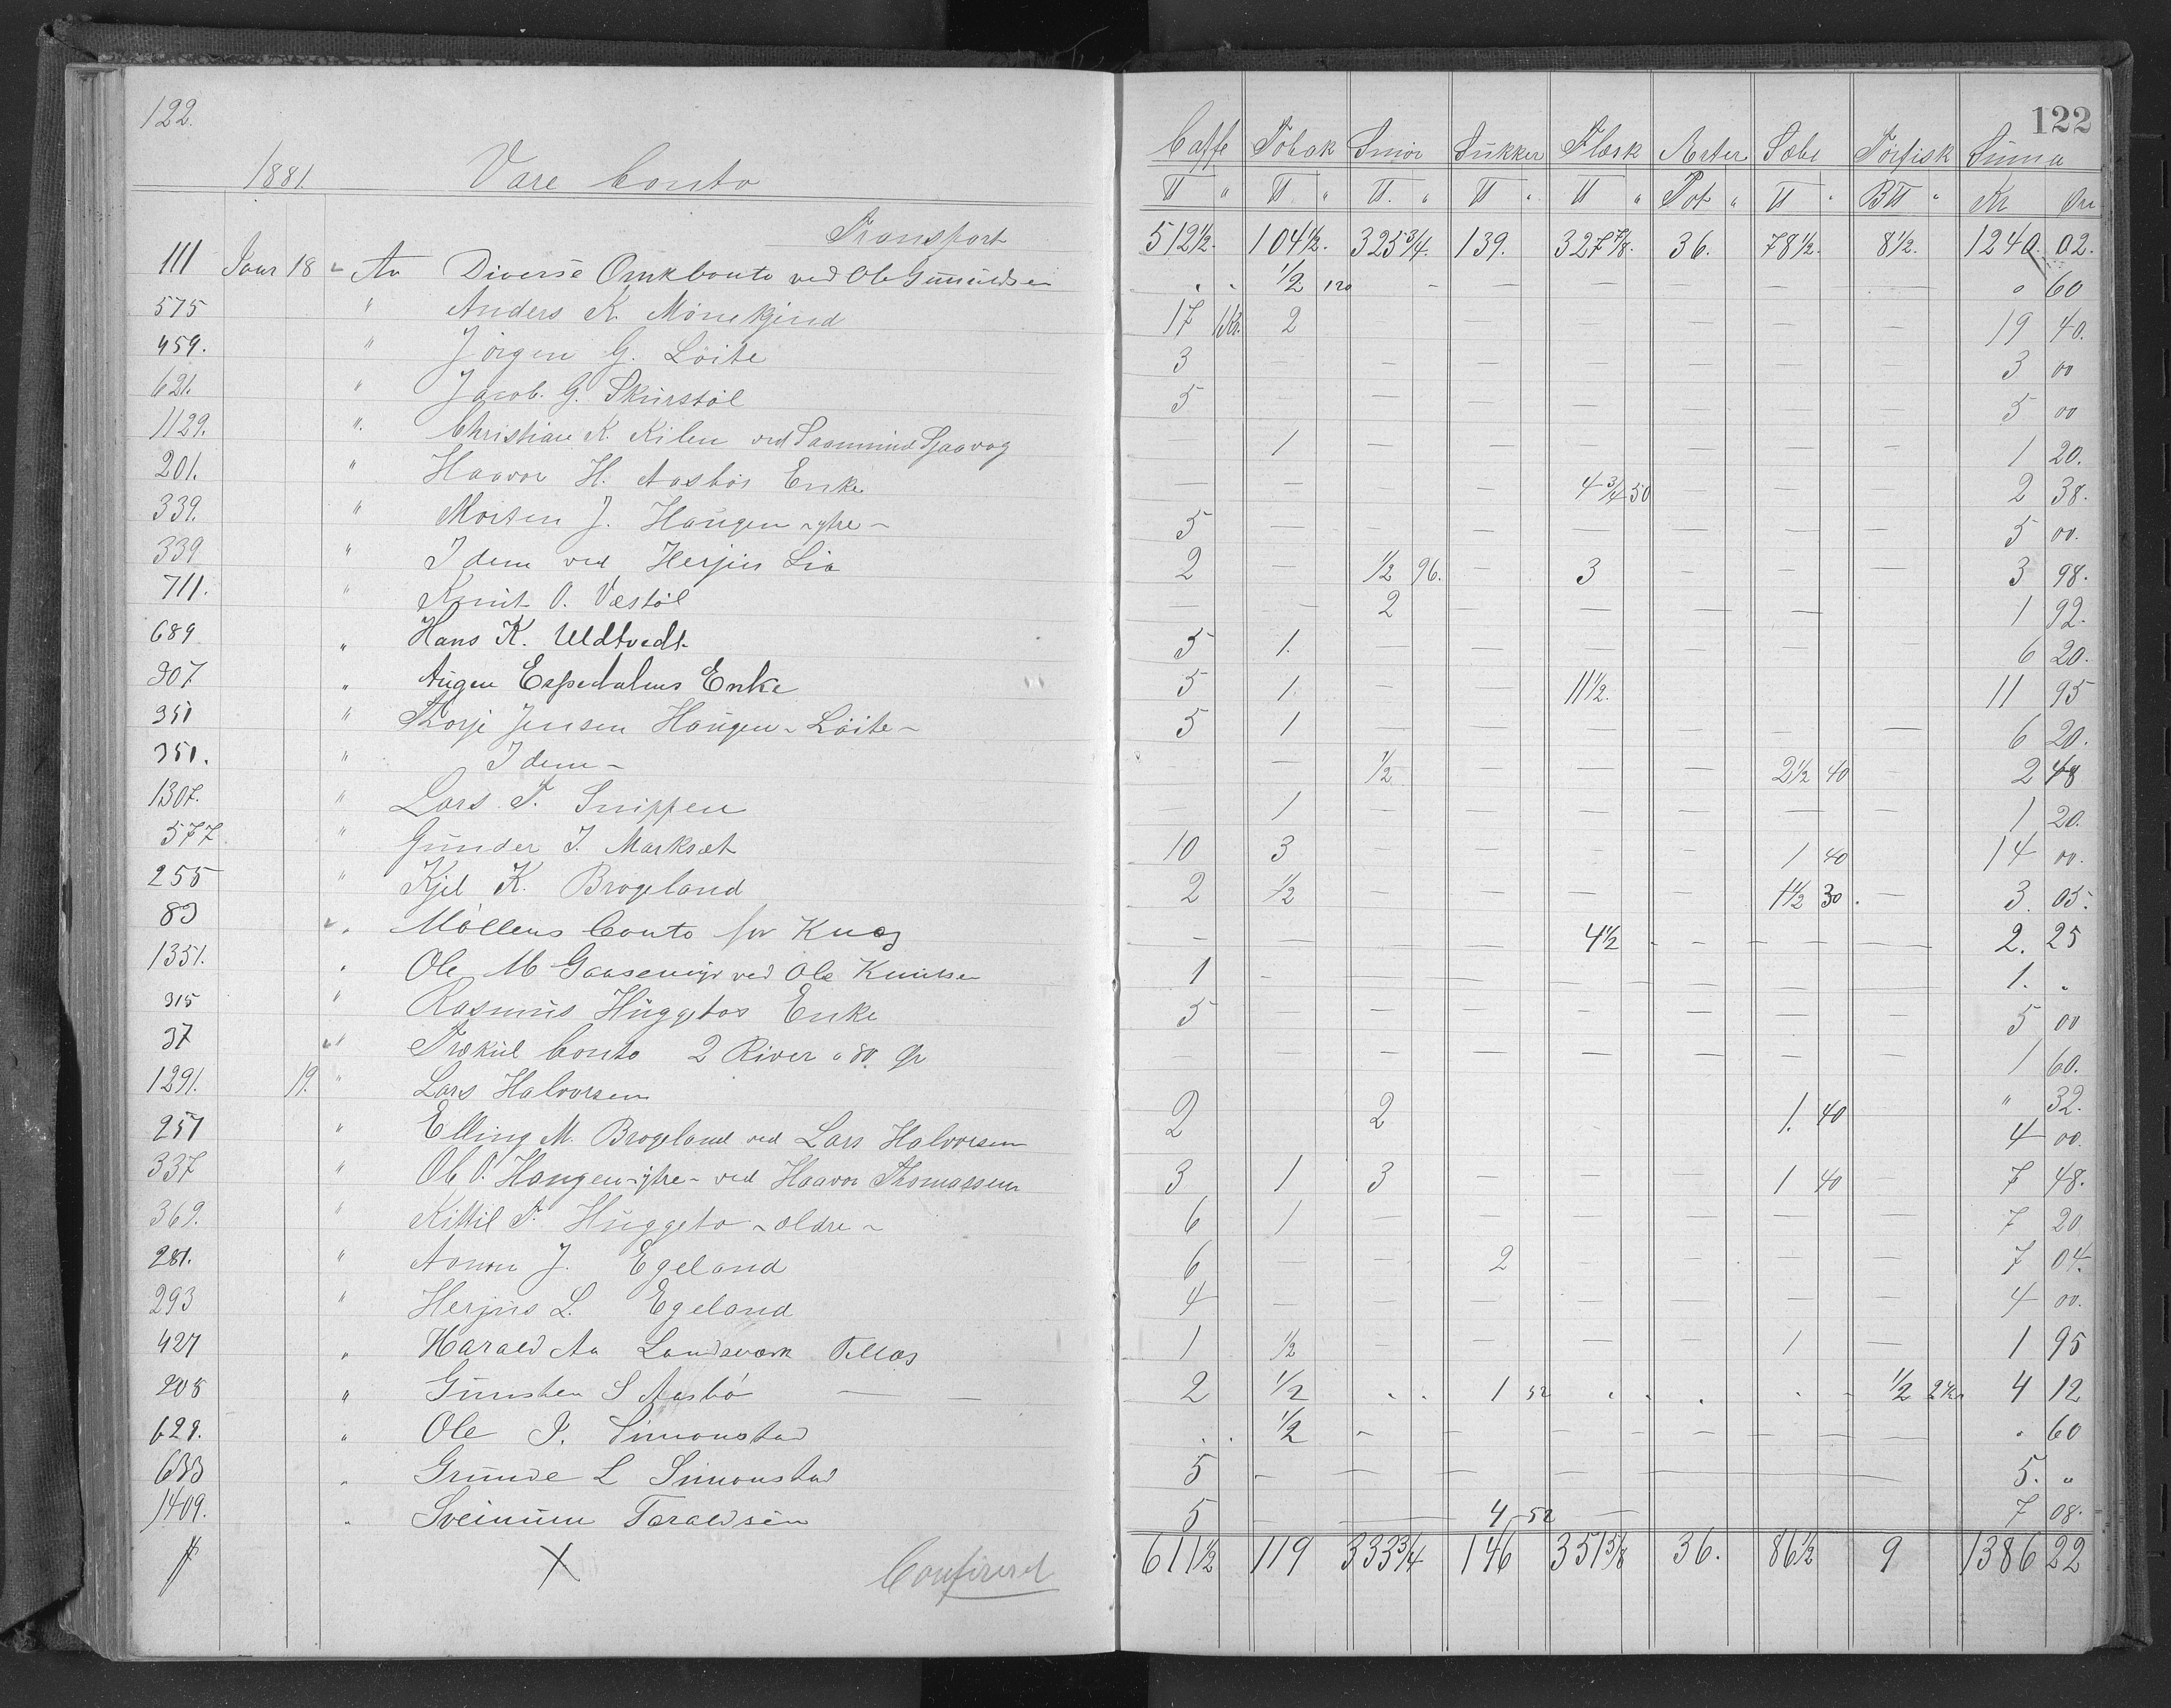 122.
122
1881. Vare Conto
Caffe Tobak Smör Sukker Flæsk Arter Sæbe Törfisk Suma
℔ " ℔ " ℔. " ℔ " ℔ " Pot " ℔ " B℔ " Kr Öre
Transport 512½. 104½. 325¾. 139. 327⅞. 36. 78½. 8½. 1240. 02.
111 Janr 18 An Diverse Omkconto ved Ole Gunuldsen " " ½ 120 - - - - - - " 60
575 " Anders K. Mönekjend 17 1Kr. 2 19 40.
459. " Jörgen G. Löite 3 3 00
621. " Jacob. G. Skurstöl 5 5 00
1129. " Christian K. Kilen ved 1 1 20.
201. " Haavor H. Aasbös Enke 4¾ 50 2 38.
339. " Morten J. Haugen -ytre- 5 5 00.
339 " Idem ved Herjus Lia 2 ½ 96. 3 3 98.
711. " Knut O. Vestöl 2 1 92.
689 " Hans K. Uldtvedt 5 1. 6 20.
307 " Augen Espedalens Enke 5 1. 11½. 11 95
351 " Thorje Jensen Haugen - Löite - 5 1 6 20.
351. " Idem - ½ 2½ 40 2 48
1307. " Lars T. Snippen 1 1 20.
577 " Gunder T. Marksæt 10 3 1 40 14 00.
255 " Kjel K. Brogeland 2 ½ 1½ 30. 3. 05.
83 " Möllens Conto for Knas 4½ 2. 25
1351. " Ole M Gaasemyr ved Ole Knutsen 1 1. "
315 " Rasmus Huggetos Enke 5 5 00
37 " Trækul Conto 2 River a 80. Ör 1 60.
1291. 19. " Lars Halvorsen " 32.
257 " Elling M. Brogeland ved Lars Halvorsen 2 2 1. 40 4 00.
337 " Ole O. Haugen - ytre - ved Haavor Thomassen 3 1 3 1 40 7 48.
369. " Kittil T. Huggeto - ældre - 6 1 7 20
281. " Aanon J. Egeland 6 2 7 04.
293 " Herjus L. Egeland 4 4 00.
427 " Harald Aa Landsværk Tellas 1 ½ 1 1 95
205 " Gunsten S Aasbö 2 ½ 1 52 ½ 2 4 12
629. " Ole P. Simonstad ½ " 60
633 " Grunde L Simonstad 5 5. "
1409. " Sveinum Taraldsen 5 4 52 7 08.
X Confereret 611½ 119 333¾ 146 351⅝ 36. 86½ 9 1386 22